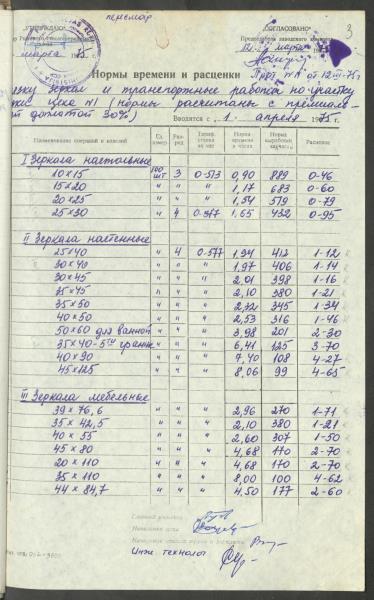 перемар
3
"УТВЕРЖДАЮ"
"СОГЛАСОВАНО"
Председатель заводского комитета
марта 75 г.
12 марта 75
Прот №1 от 12/III-75 г.
Нормы времени и расценки
зеркал и транспортные работы по участку
цеха №1 (нормы рассчитаны с
доплатой 30%) Вводится с „1" апреля 1975 г.
Наименование операций и изделий Ед. измер. Раз-ряд Тариф. ставка за час Норма времени в часах Норма выработки Расценка
I Зеркала настольные
10×15 100 шт 3 0-513 0,90 889 0-46
15×20 " " " 1,17 683 0-60
20×25 " " " 1,54 519 0-79
25×30 " 4 0-577 1,65 432 0-95
II Зеркала настенные
25×40 " 4 0-577 1,94 412 1-12
30×40 " " " 1,97 406 1-14
30×45 " " " 2,01 398 1-16
35×45 " " " 2,10 380 1-21
35×50 " " " 2,32 345 1-34
40×50 " " " 2,53 316 1-46
50×60 для ванной " " " 3,98 201 2-30
35×40-5ти гранн " " " 6,41 125 3-70
40×90 " " " 7,40 108 4-27
45×125 " " " 8,06 99 4-65
III Зеркала мебельные
39×76,6 " " " 2,96 270 1-71
35×42,5 " " " 2,10 380 1-21
40×55 " " " 2,60 307 1-50
45×80 " " " 4,68 170 2-70
20×110 " " " 4,68 170 2-70
35×110 " " " 8,00 100 4-62
44×84,7 " " " 4,50 177 2-60
Главный инженер
Начальник цеха
Начальник отдела труда и зарплаты
Инж. технолог